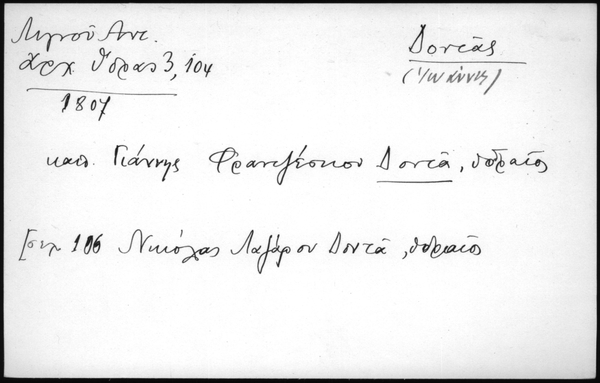 Λιγνοῦ Αντ.
Ἀρχ. Ὕδρας 3, 104
1807
Δοντᾶς
(Ἰωάννης)
καπ. Γιάννης Φραντζέσκου Δοντᾶ, ὑδραῖος
[σελ 106 Νικόλας Λαζάρου Δοντᾶ, ὑδραῖος